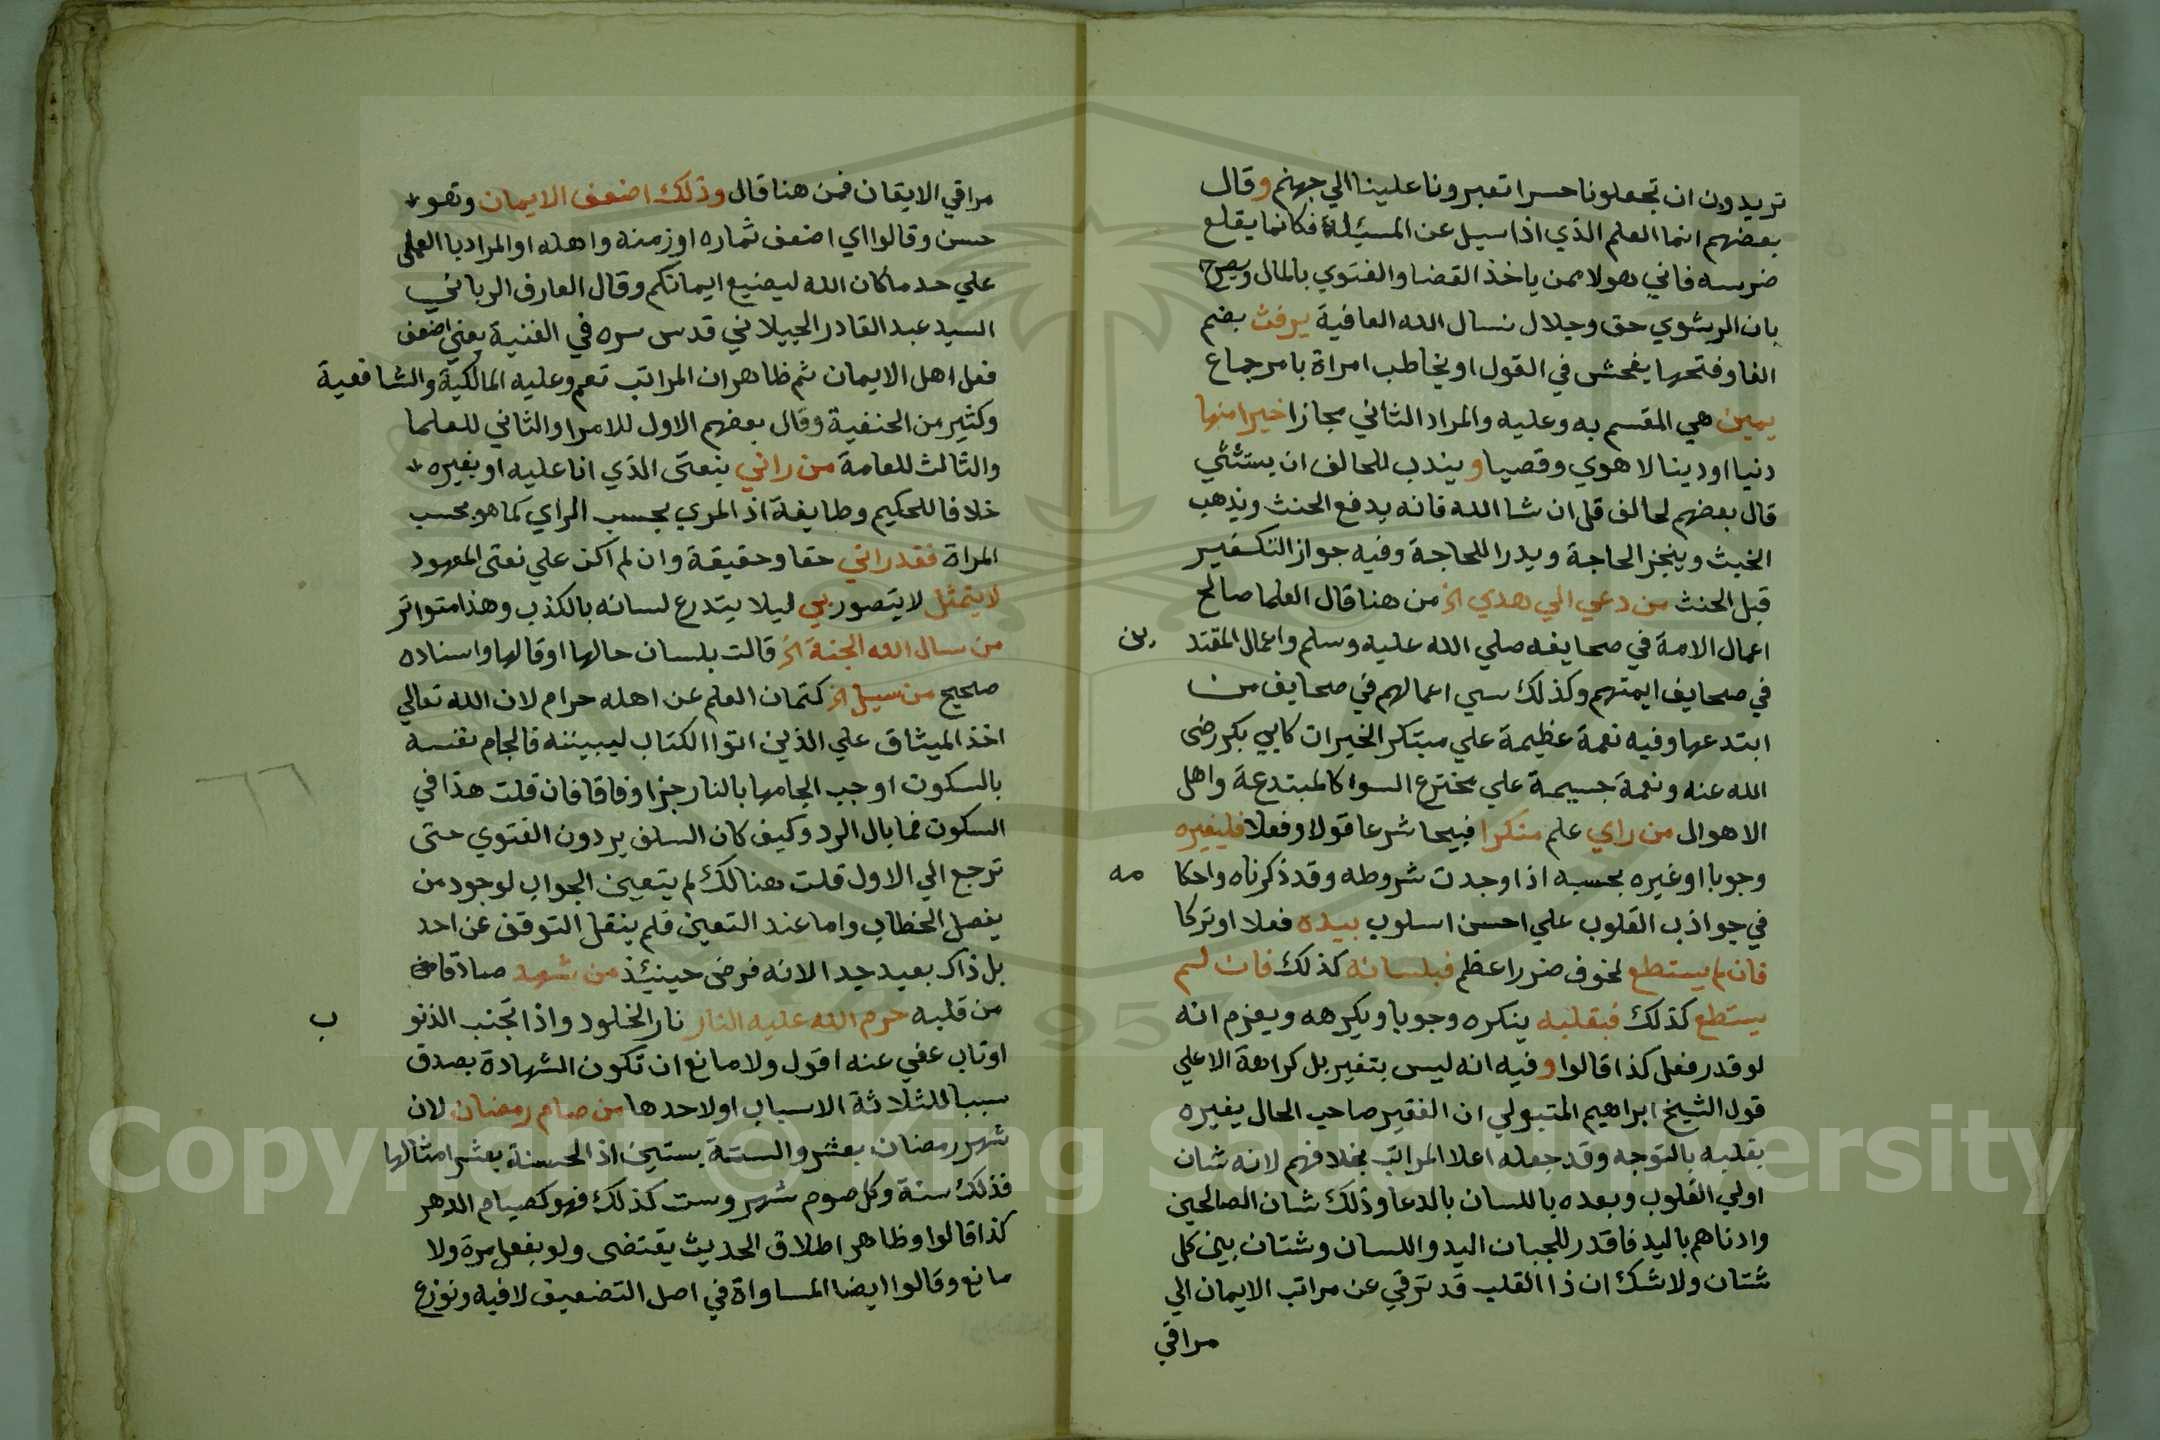 تريدون ان تجعلونا حسرا تعبرونا علينا الي جهنم وقال
بعضهم انما العلم الذي اذا سيل عن المسئلة فكانما يقلع
ضرسه فاني هولا ممن ياخذ القضا والفتوي بالمال ويصرح
بان الرشوي حق وحلال نسال الله العافية يرفث بضم
الفا وفتحها يفحش في القول او يخاطب امراة بامر جماع
يمين هي المقسم به وعليه والمراد الثاني مجازا خيرا منها
دنيا او دينا لا هوي وقصيا ويندب للحالف ان يستثني
قال بعضهم لحالف قل ان شا الله فانه يدفع الحنث ويذهب
الخبث وينجز الحاجة ويدرا للحاجة وفيه جواز التكفير
قبل الحنث من دعي الي هدي الخ من هنا قال العلما صالح
اعمال الامة في صحايفه صلي الله عليه وسلم واعمال المقتد
ين
في صحايف ايمتهم وكذلك سي اعمالهم في صحايف من
ابتدعها وفيه نعمة عظيمة علي مبتكر الخيرات كابي بكر رضى
الله عنه ونعمة جسيمة علي مخترع السوا كالمبتدعة واهل
الاهوال من راي علم منكرا قبيحا شرعا قولا وفعلا فليغيره
وجوبا او غيره بحسبه اذا وجدت شروطه وقد ذكرناه واحكا
مه
في جواذب القلوب علي احسن اسلوب بيده فعلا او تركا
فان لم يستطع لخوف ضرر اعظم فبلسانه كذلك فان لم
يستطع كذلك فبقلبه ينكره وجوبا ويكرهه ويعزم انه
لو قدر فعل كذا قالوا وفيه انه ليس بتغير بل كراهة الاعلي
قول الشيخ ابراهيم المتبولي ان الفقير صاحب الحال يغيره
بقلبه بالتوجه وقد جعله اعلا المراتب بخلافهم لانه شان
اولي القلوب وبعده باللسان بالدعا وذلك شان الصالحين
وادناهم باليد فاقدر للجبان اليد واللسان وشتان بين كل
شتان ولا شك ان ذا القلب قد ترقي عن مراتب الايمان الي
مراقي
مراقي الايقان فمن هنا قال وذلك اضعف الايمان وهو
حسن وقالوا اي اضعف ثماره او زمنه واهله او المراد با العملي
علي حد ما كان الله ليضيع ايمانكم وقال العارف الرباني
السيد عبد القادر الجيلاني قدس سره في الغنية يعني اضعف
فعل اهل الايمان ثم ظاهر ان المراتب تعم وعليه المالكية والشافعية
وكثير من الحنفية وقال بعضهم الاول للامرا والثاني للعلما
والثالث للعامة من راني بنعتى الذي انا عليه او بغيره
خلافا للحكيم وطايفة اذ المري بحسب الراي كما هو بحسب
المراة فقد راني حقا وحقيقة وان لم اكن علي نعتى المعهود
لا يتمثل لا يتصور بي ليلا يتدرع لسانه بالكذب وهذا متواتر
من سال الله الجنة الخ قالت بلسان حالها او قالها واسناده
صحيح من سيل الخ كتمان العلم عن اهله حرام لان الله تعالي
اخذ الميثاق علي الذين اتوا الكتاب ليبيننه فالجام نفسه
بالسكوت اوجب الجامها بالنار جزا وفاقا فان قلت هذا في
السكوت فما بال الرد وكيف كان السلف يردون الفتوي حتى
ترجع الي الاول قلت هنالك لم يتعين الجواب لوجود من
يفصل الخطاب واما عند التعين فلم ينقل التوقف عن احد
بل ذاك بعيد جدا لانه فرض حينيذ من شهد صادقا
من قلبه حرم الله عليه النار نار الخلود واذا تجنب الذنو
ب
او تاب عفي عنه اقول ولا مانع ان تكون الشهادة بصدق
سببا للثلاثة الاسباب او لاحدها من صام رمضان لان
شهر رمضان بعشر والستة بستين اذ الحسنة بعشر امثالها
فذلك سنة وكل صوم شهر وست كذلك فهو كصيام الدهر
كذا قالوا وظاهر اطلاق الحديث يقتضى ولو بفعل مرة ولا
مانع وقالوا ايضا المساواة في اصل التضعيف لا فيه ونوزع
٦٦
Copyright © King Saud University
1957